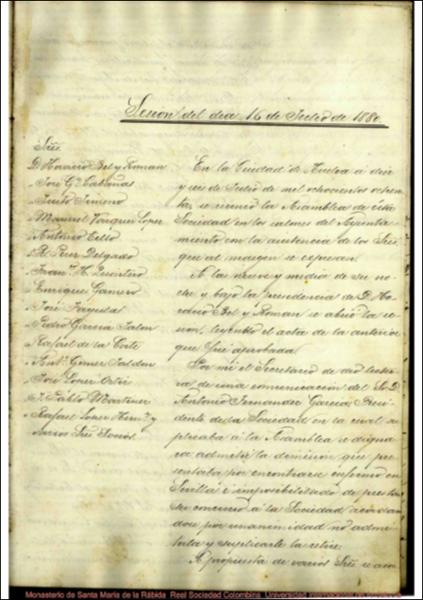 Sesion del dia 16 de Julio de 1880
Sres.
D. Horacio Bel y Roman
" José Gª Cabañas
" Justo Jimeno
" Manuel Vazquez Lopez
" Antonio
" R. Perez Delgado
" Franco H. Quintero
" Enrique Gamero
" José
" Pedro Garcia Jalon
" Rafael de la Corte
" Antº Gomez
" José Lopez Ortiz
" Pablo Martinez
" Rafael Lopez Hernz. y
varios Sres Socios.
En la Ciudad de Huelva á diez
y seis de Julio de mil ochocientos ochen
ta, se reunió la Asamblea de esta
Sociedad en los salones del Ayunta
miento con la asistencia de los Sres.
que al margen se espresan.
A las nueve y media de su no
che y bajo la presidencia de D. Ho
racio Bel y Roman se abrió la se
sion, leyendo el acta de la anterior
que fué aprobada.
Por mí el Secretario se dió lectura
de una comunicacion del Sr. D.
Antonio Fernandez Garcia, Presi
dente de la Sociedad en la cual su
plicaba á la Asamblea se digna
ra admitir la dimision que pre
sentaba por encontrarse enfermo en
Sevilla é imposibilitado de pres
su concurso á la Sociedad, acordan
dose por unanimidad no admi
tirla y suplicarle la retire.
A propuesta de varios Sres. se acor
Monasterio de Santa María de la Rábida. Real Sociedad Colombina. Universidad Internacional de Andalucía